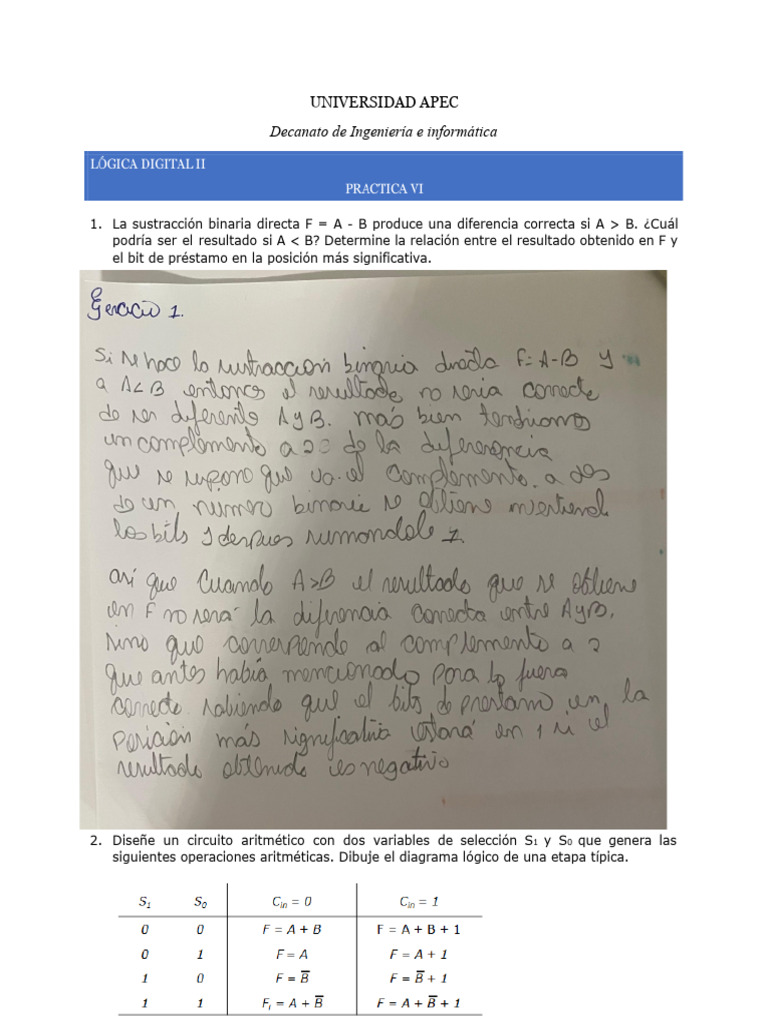 UNIVERSIDAD APEC
Decanato de Ingeniería e informática
LÓGICA DIGITAL II
PRACTICA VI
1. La sustracción binaria directa F = A - B produce una diferencia correcta si A > B. ¿Cuál
podría ser el resultado si A < B? Determine la relación entre el resultado obtenido en F y
el bit de préstamo en la posición más significativa.
Ejercicio 1.
Si se hace la sustraccion binaria directa F=A-B y
a A<B entonces el resultado no seria correcte
de ser diferente A y B. más bien tendriamos
un complemento a 2 de la diferencia
que se supone que va. el complemento a dos
de un numero binario se obtiene invirtiendo
los bits y despues sumandole 1.
así que cuando A>B el resultado que se obtiene
en F no será la diferencia correcta entre A y B,
sino que corresponde al complemento a 2
que antes había mencionado para lo fuera
correcto. sabiendo que el bits de prestamo en la
posición más significativa estará en 1 si el
resultado obtenido es negativo
2. Diseñe un circuito aritmético con dos variables de selección S₁ y S₀ que genera las
siguientes operaciones aritméticas. Dibuje el diagrama lógico de una etapa típica.
S₁ S₀ Cᵢₙ = 0 Cᵢₙ = 1
0 0 F = A + B F = A + B + 1
0 1 F = A F = A + 1
1 0 F = B̅ F = B̅ + 1
1 1 Fᵢ = A + B̅ F = A + B̅ + 1